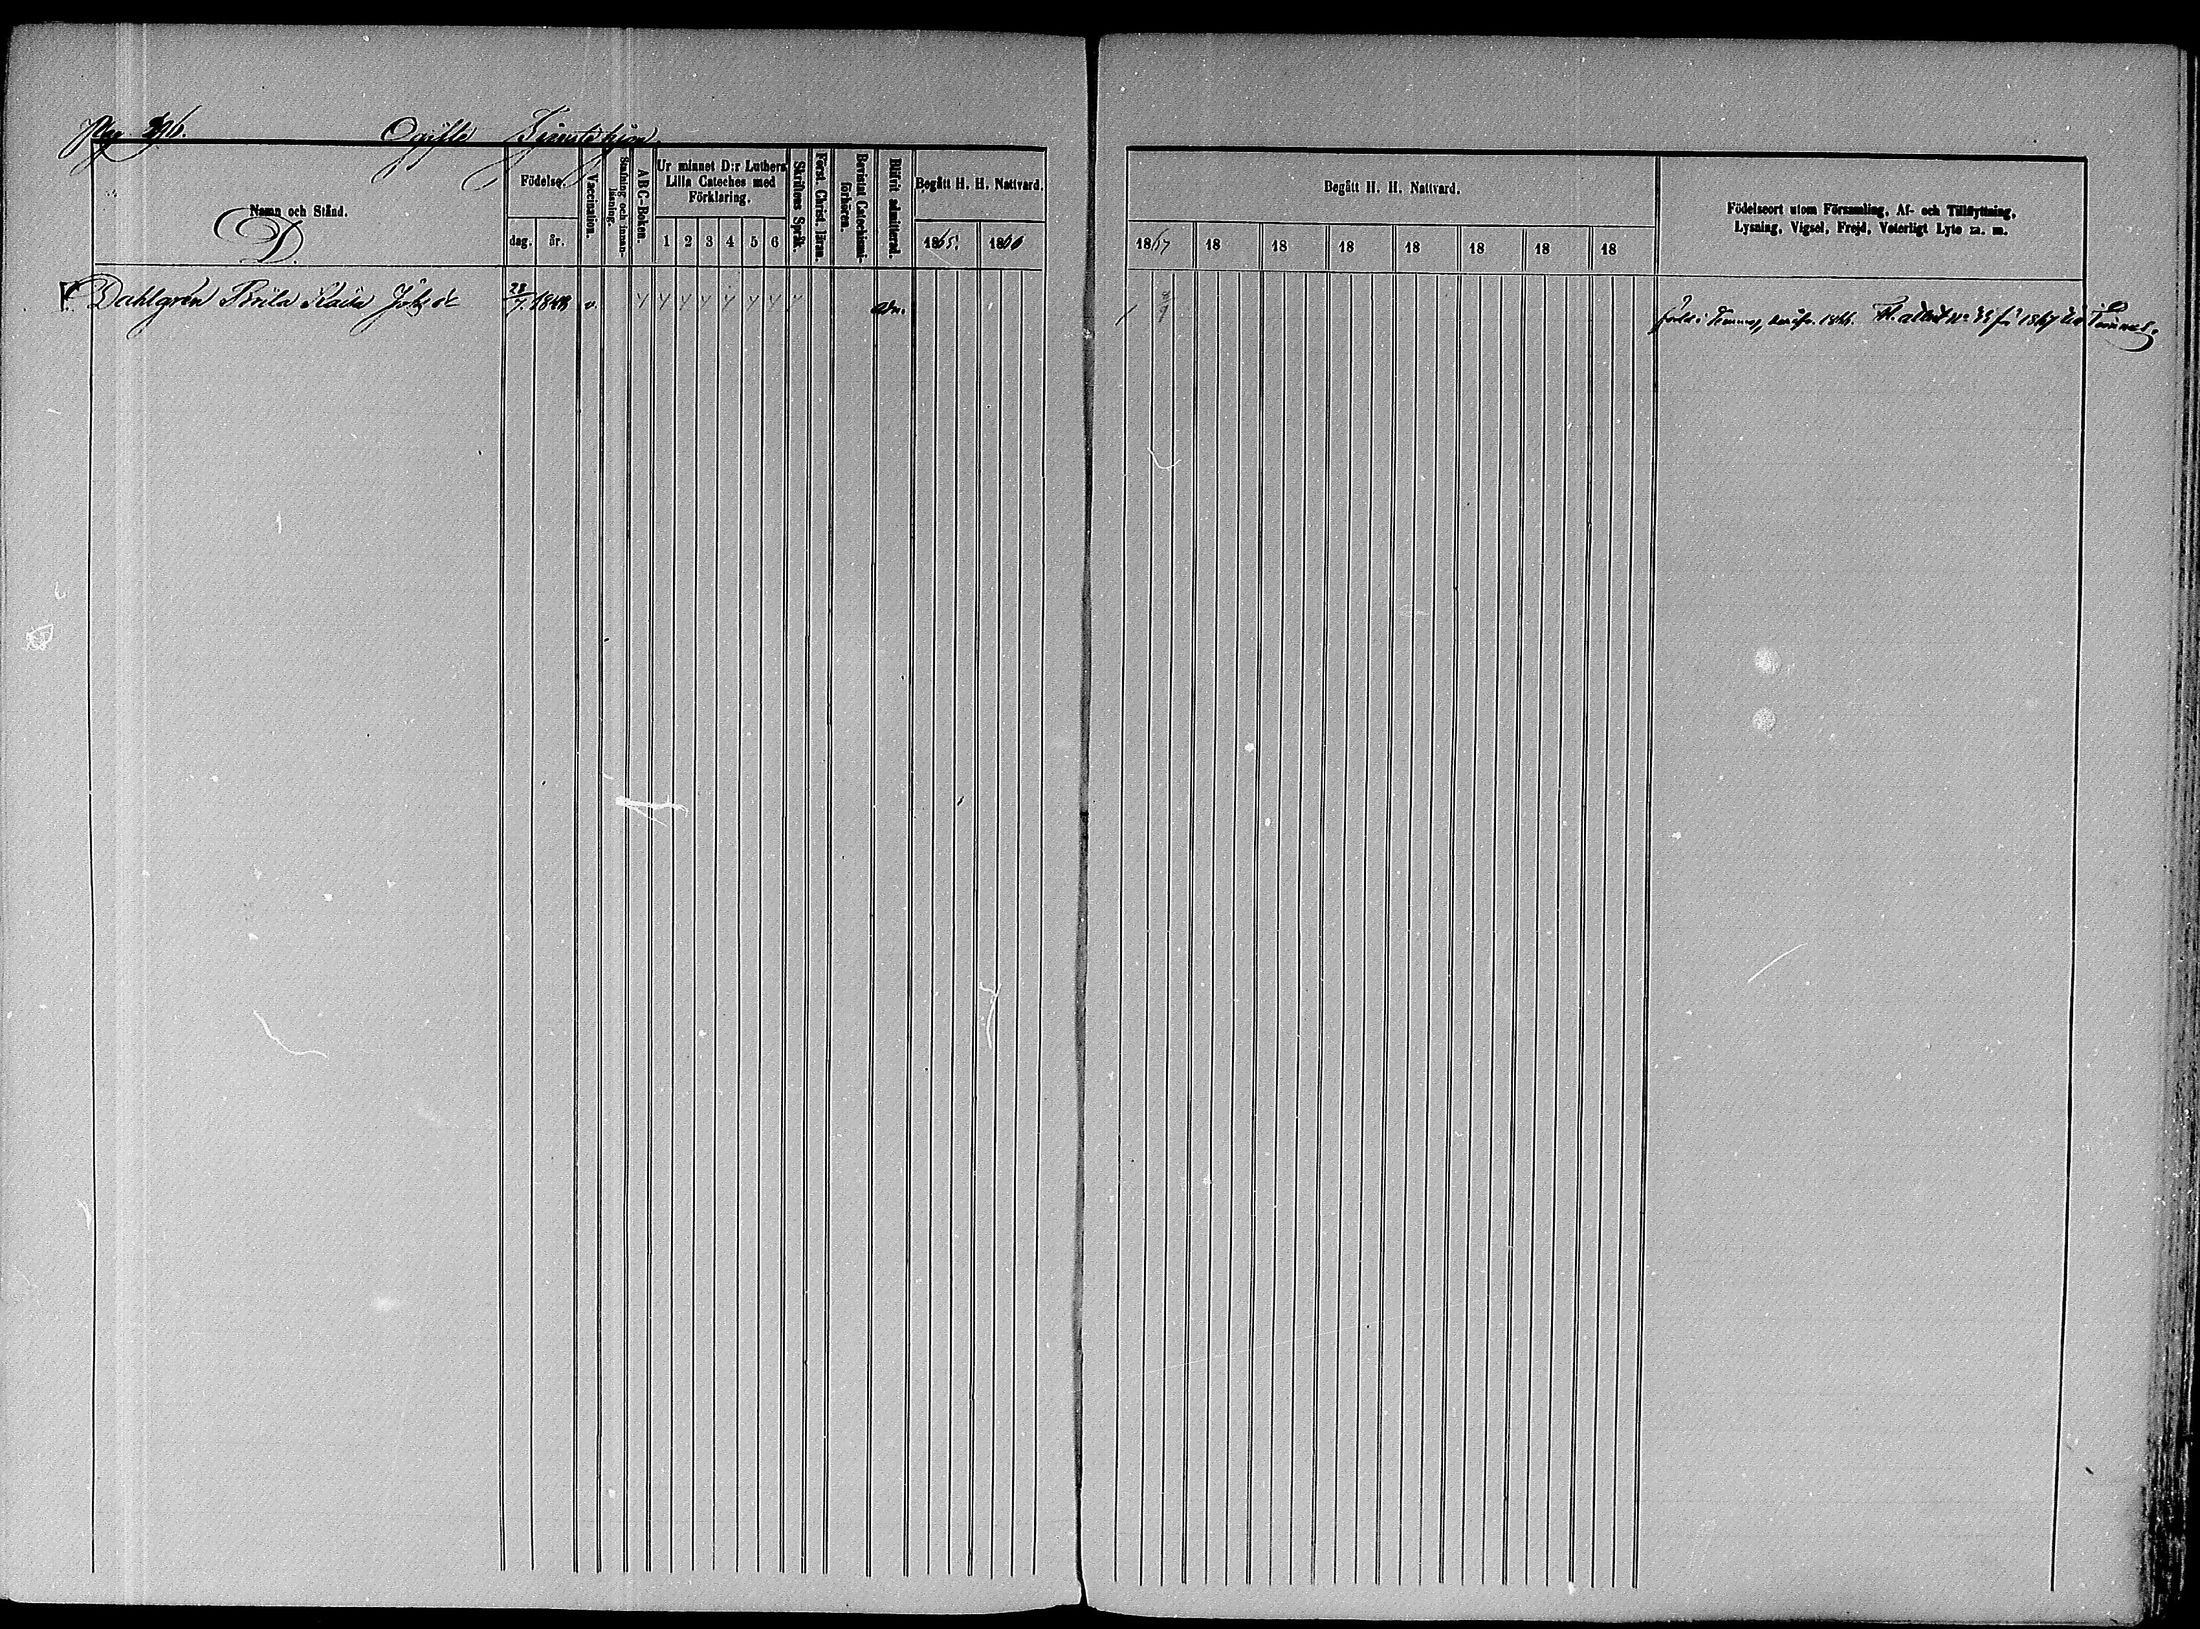 Pag 296.
Ogifte Tjenstehjon.
Namn och Stånd.
D.
Födelse.
dag. år.
Vaccination.
Stafning och innan-
läsning.
ABC-Boken.
Ur minnet D:r Luthers
Lilla Cateches med
Förklaring.
1 2 3 4 5 6
Skriftens Språk.
Först. Christ. läran.
Bevistat Catechismi-
förhören.
Blifvit admitterad.
Begått H. H. Nattvard.
1865. 1866
Begått H. H. Nattvard.
1867 18 18 18 18 18 18 18
Födelseort utom Församling, Af- och Tillflyttning,
Lysning, Vigsel, Frejd, Veterligt Lyte m. m.
Dahlgrén Brita Kaisa 28/7. 1848 v. adm.
född i 1866. Fl. attest No 33 för 1867